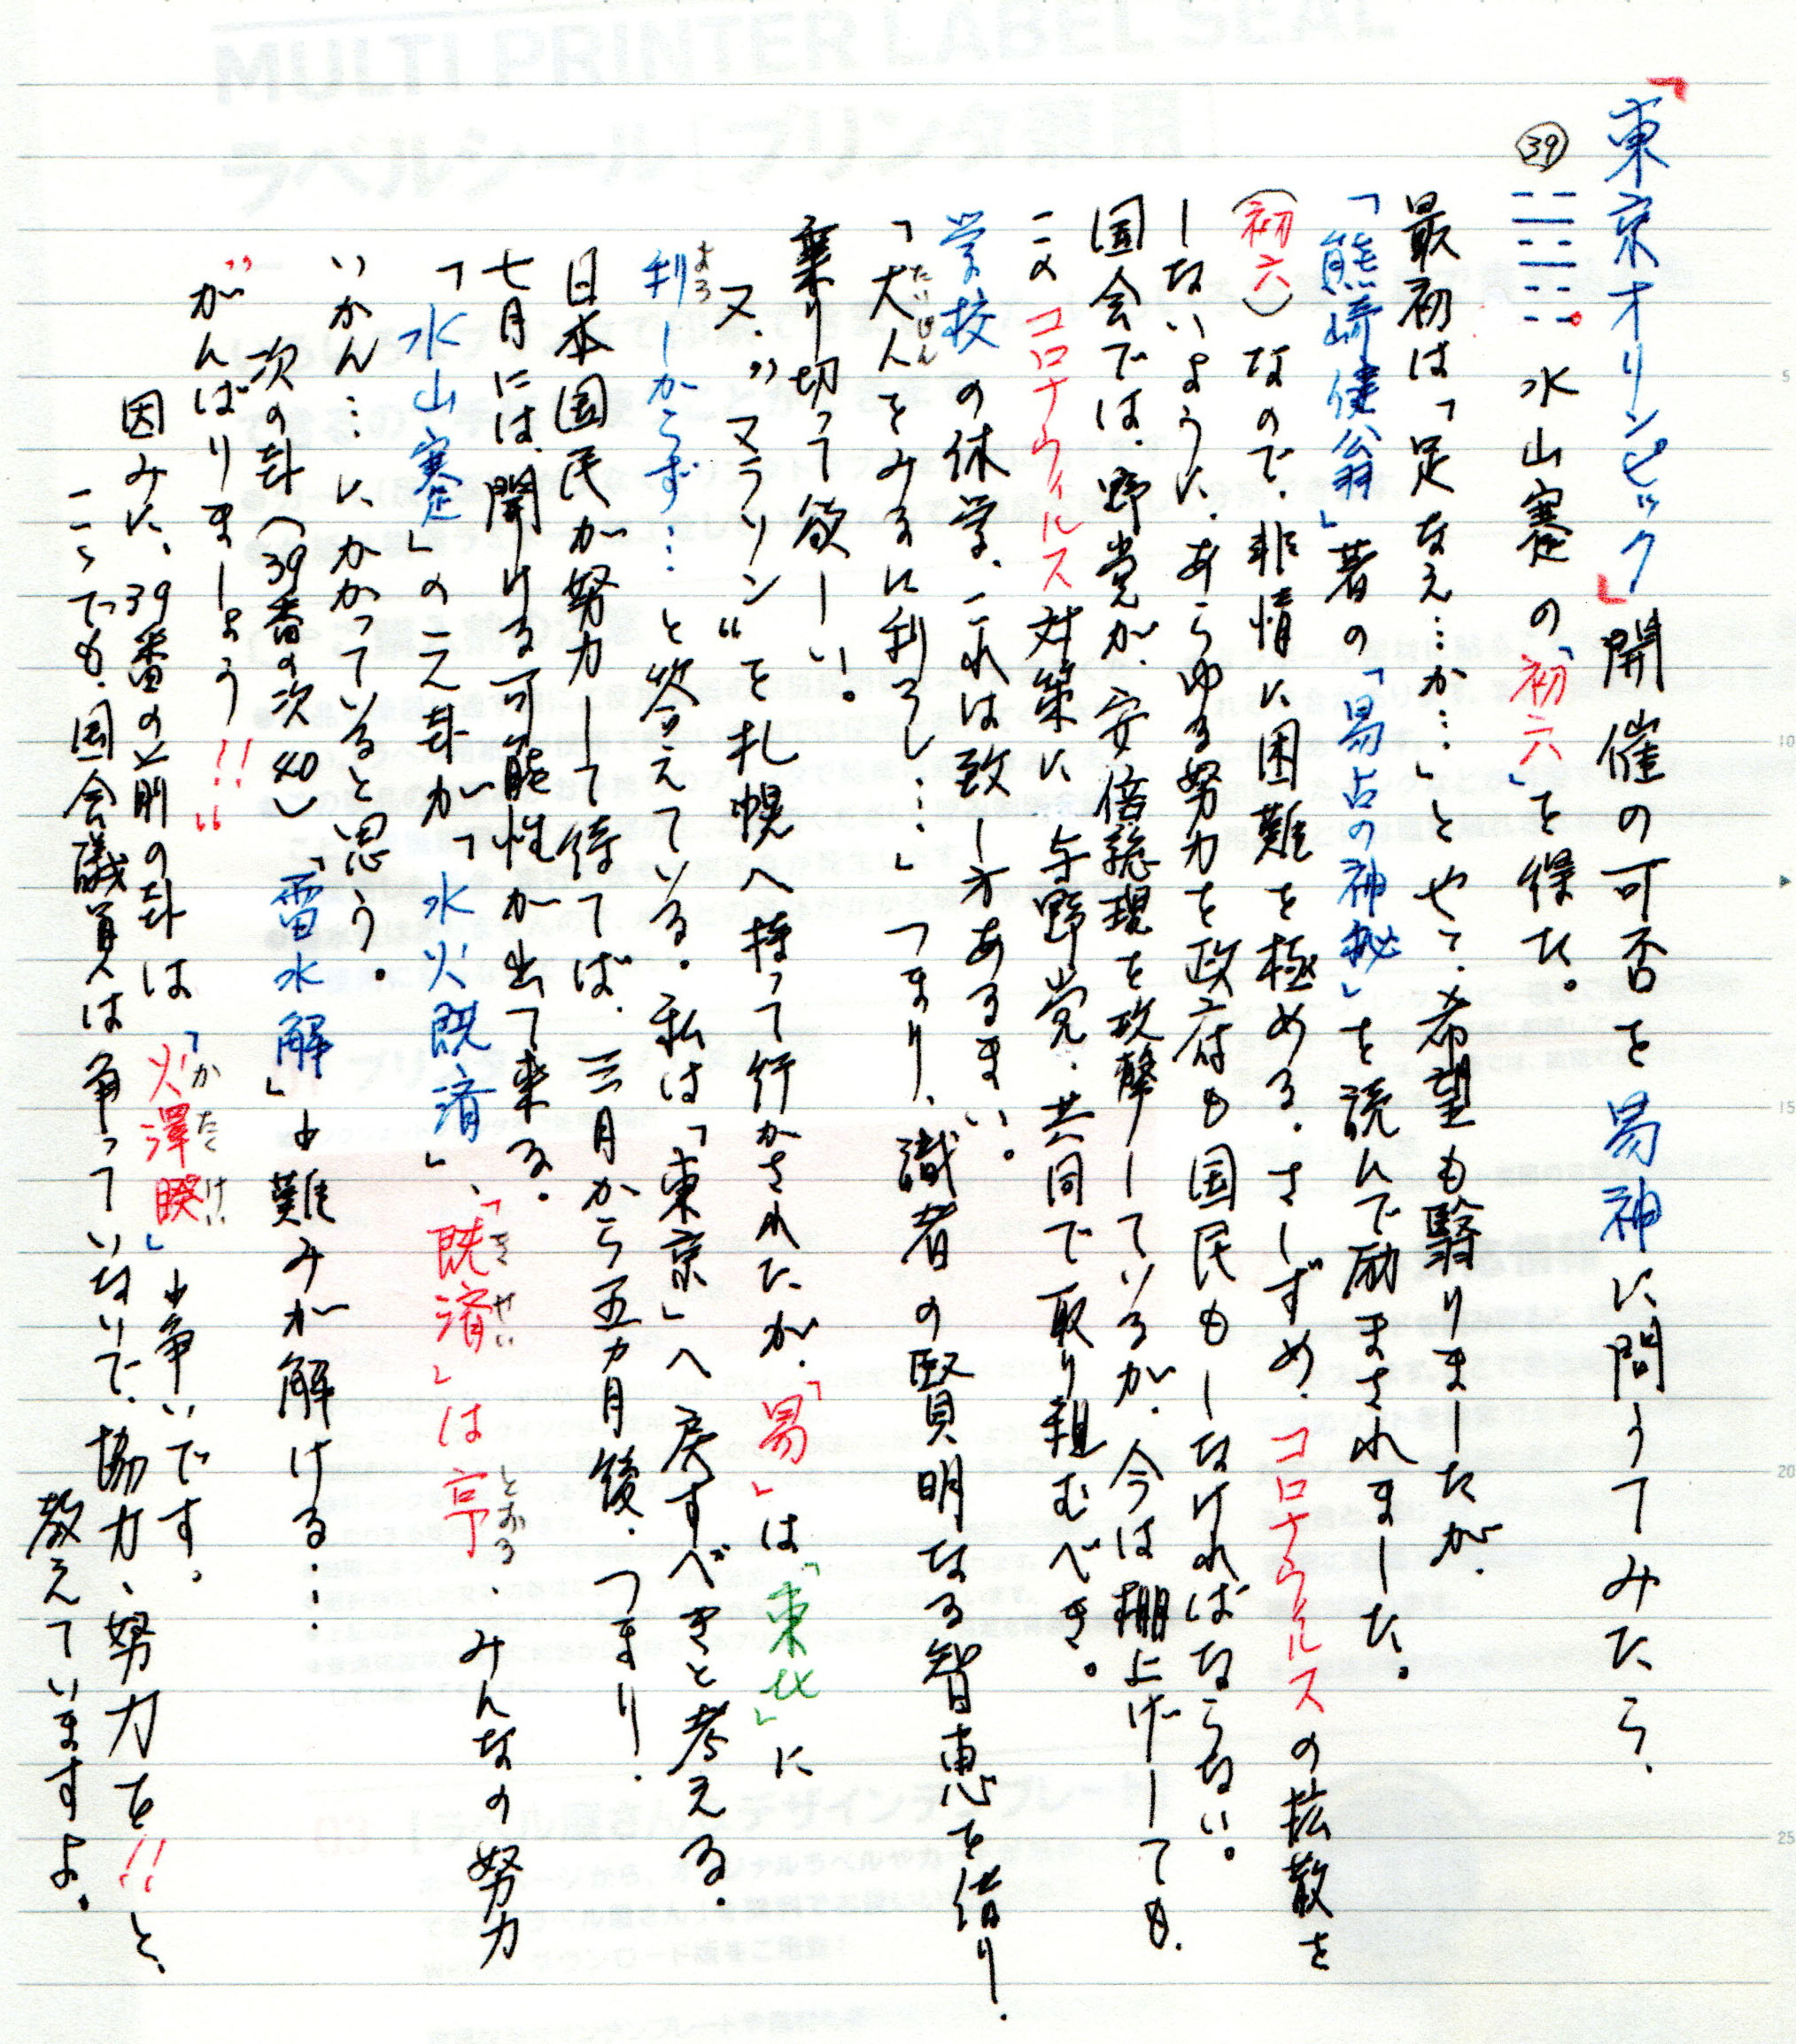 「東京オリンピック」開催の可否を易神に問うてみたら、
㊴ 水山蹇の「初六」を得た。
最初は「足なえ…か…」とやて、希望も翳りましたが、
「熊崎健翁」著の「易占の神秘」を読んで励まされました。
(初六)なので、非情に困難を極める。さしずめ、コロナウィルスの拡散を
しないように、あらゆる努力を政府も国民もしなければならない。
国会では、野党が、安倍総理を攻撃しているが、今は棚上げしても、
このコロナウィルス対策に与野党、共同で取り組むべき。
学校の休学、これは致し方あるまい。
「大人をみるに利ろし…」つまり、識者の賢明なる智恵を借り、
たいじん
乗り切って欲しい。
又、"マラソン"を札幌へ持って行かされたが、「易」は「東北」に
利しからず…と答えている。私は「東京」へ戻すべきと考える。
よろ
日本国民が努力して待てば、三月から五カ月後、つまり、
七月には、開ける可能性が出て来る。
「水山蹇」の之卦が「水火既済」、「既済」は亨、みんなの努力
きせい
とおる
いかん…にかかっていると思う。
次の卦(39番の次40)「雷水解」は難みが解ける…
"がんばりましょう!!"
因みに、39番の前の卦は「火澤睽」は争いです。
かたくけい
ここでも、国会議員は争っていないで、協力、努力を!!と、
教えていますよ。
MULTI PRINTER LABEL SEAL
5
10
15
20
25